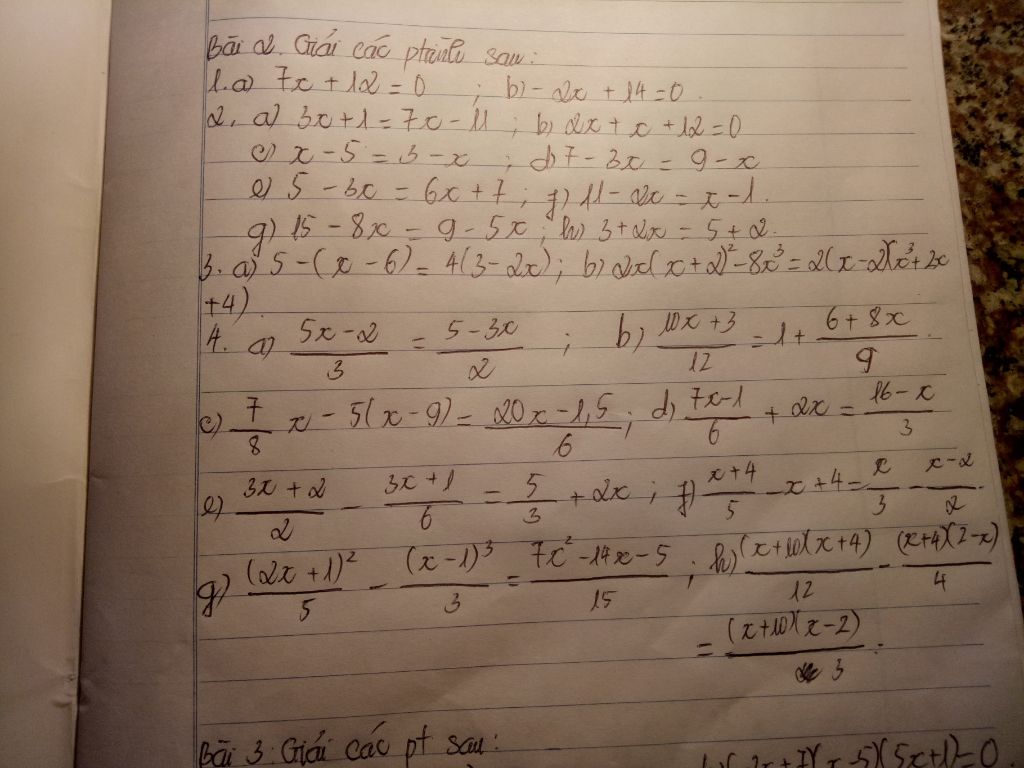 Bài 2. Giải các ptrình sau:
1. a) 7x + 12 = 0 ; b) - 2x + 14 = 0.
2. a) 3x + 1 = 7x - 11 ; b) 2x + x + 12 = 0
c) x - 5 = 3 - x ; d) 7 - 3x = 9 - x
e) 5 - 3x = 6x + 7 ; f) 11 - 2x = x - 1.
g) 15 - 8x = 9 - 5x ; h) 3 + 2x = 5 + 2.
3. a) 5 - (x - 6) = 4(3 - 2x) ; b) 2x(x + 2)² - 8x³ = 2(x - 2)(x³ + 2x
+4).
4. a) (5x - 2)/3 = (5 - 3x)/2 ; b) (10x + 3)/12 = 1 + (6 + 8x)/9.
c) 7/8 x - 5(x - 9) = (20x - 1,5)/6 ; d) (7x - 1)/6 + 2x = (16 - x)/3
e) (3x + 2)/2 - (3x + 1)/6 = 5/3 + 2x ; f) (x + 4)/5 - x + 4 = x/3 - (x - 2)/2.
g) (2x + 1)²/5 - (x - 1)³/3 = (7x² - 14x - 5)/15 ; h) (x + 10)(x + 4)/12 - (x + 4)(2 - x)/4
= (x + 10)(x - 2)/3.
Bài 3: Giải các pt sau:
x - 5)(5x + 1) = 0